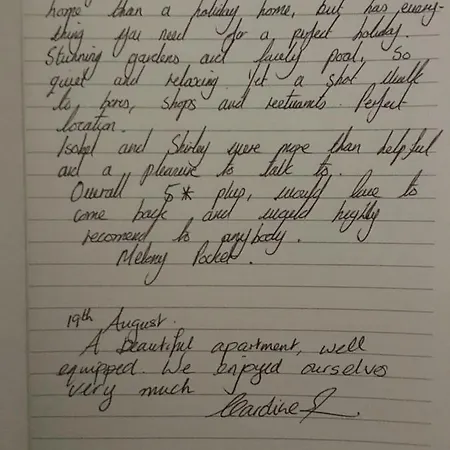 home than a holiday home, but has every-
thing you need for a perfect holiday.
Stunning gardens and lovely pool, so
quiet and relaxing. Yet a short walk
to bars, shops and resturants. Perfect
location.
Isabel and Shirley were more than helpful
and a pleasure to talk to.
Overall 5* plus, would love to
come back and would highly
recomend to anybody.
Melony Pocket.
19th August.
A beautiful apartment, well
equipped. We enjoyed ourselves
very much